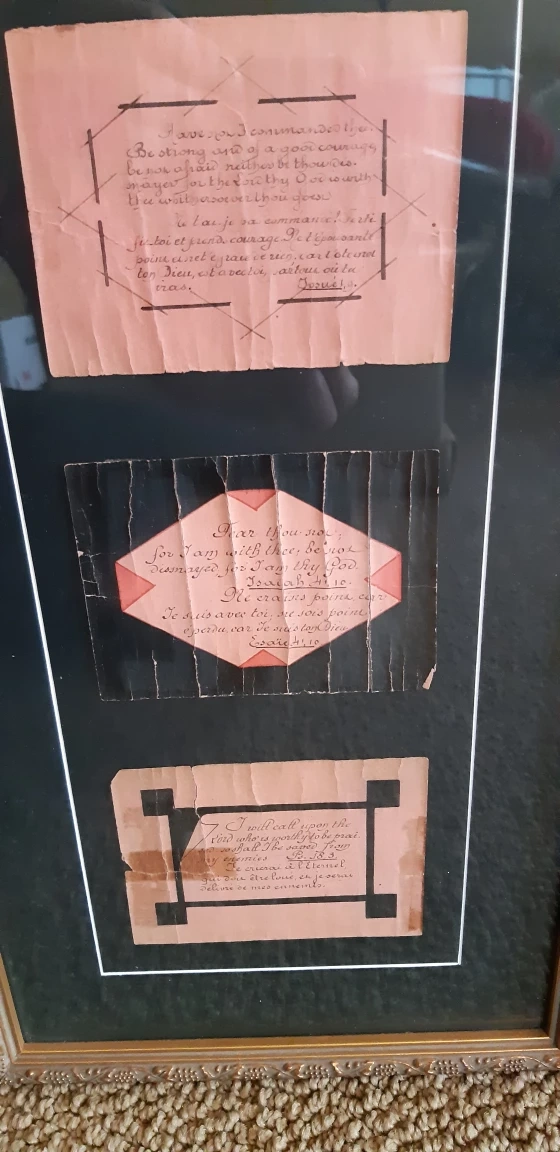 Have not I commanded thee.
Be strong and of a good courage,
be not afraid neither be thou dis-
mayed for the Lord thy God is with
thee withersoever thou goest
je t'ai-je pas commandé? Forti
fie toi et prends courage Ne t'épouvante
point et ne t'effraie de rien, car l'éternel
ton Dieu, est avec toi, partout où tu
iras. Josué 1,9.
Fear thou not;
for I am with thee; be not
dismayed, for I am thy God.
Isaiah 41.10.
Ne crains point, car
Je suis avec toi, ne sois point
éperdu car Je suis ton Dieu
Esaïe 41,10
I will call upon the
Lord who is worthy to be prai-
so shall I be saved from
my enemies Ps. 18.3.
Je crierai à l'Éternel
qui doit être loué, et je serai
délivré de mes ennemis.